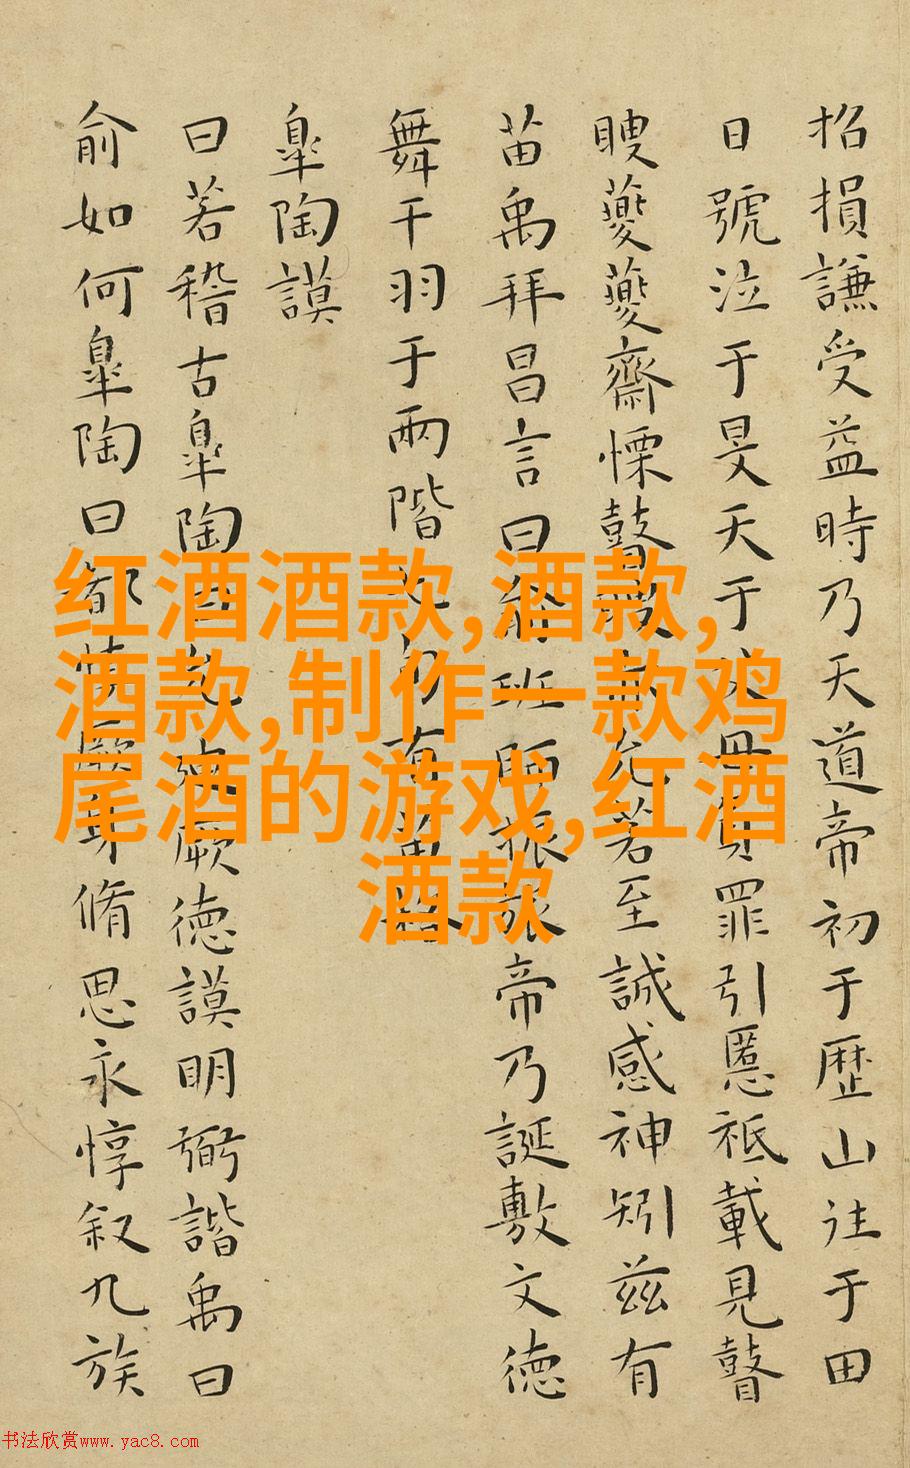 招損謙受益時乃天道帝初于歴山往于田
日號泣于旻天于父母負罪引慝祗載見瞽
瞍夔夔齋慄瞽瞍亦允若至誠感神矧茲有
苗禹拜昌言曰俞班師振旅帝乃誕敷文德
舞干羽于兩階七旬有苗格
皐陶謨
曰若稽古皐陶曰允迪厥德謨明弼諧禹曰
俞如何皐陶曰都慎厥身脩思永惇叙九族
红酒酒款,酒款,
酒款,制作一款鸡
尾酒的游戏,红酒
酒款
书法欣赏www.yac8.com